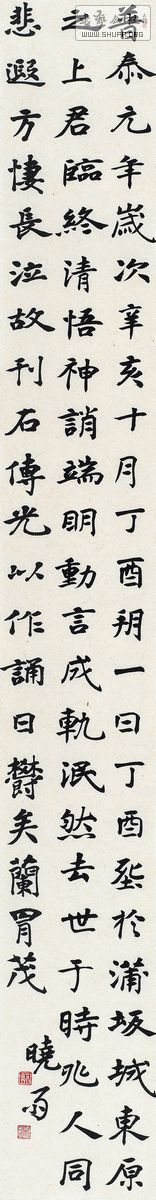 普泰元年歲次辛亥十月丁酉朔一日丁酉葬於蒲坂城東原
之上君臨終清悟神誚端明動言成軌泯然去世于時兆人同
悲遐方悽長泣故刊石傳光以作誦曰鬱矣蘭胄茂
曉
www.SHUFA.org